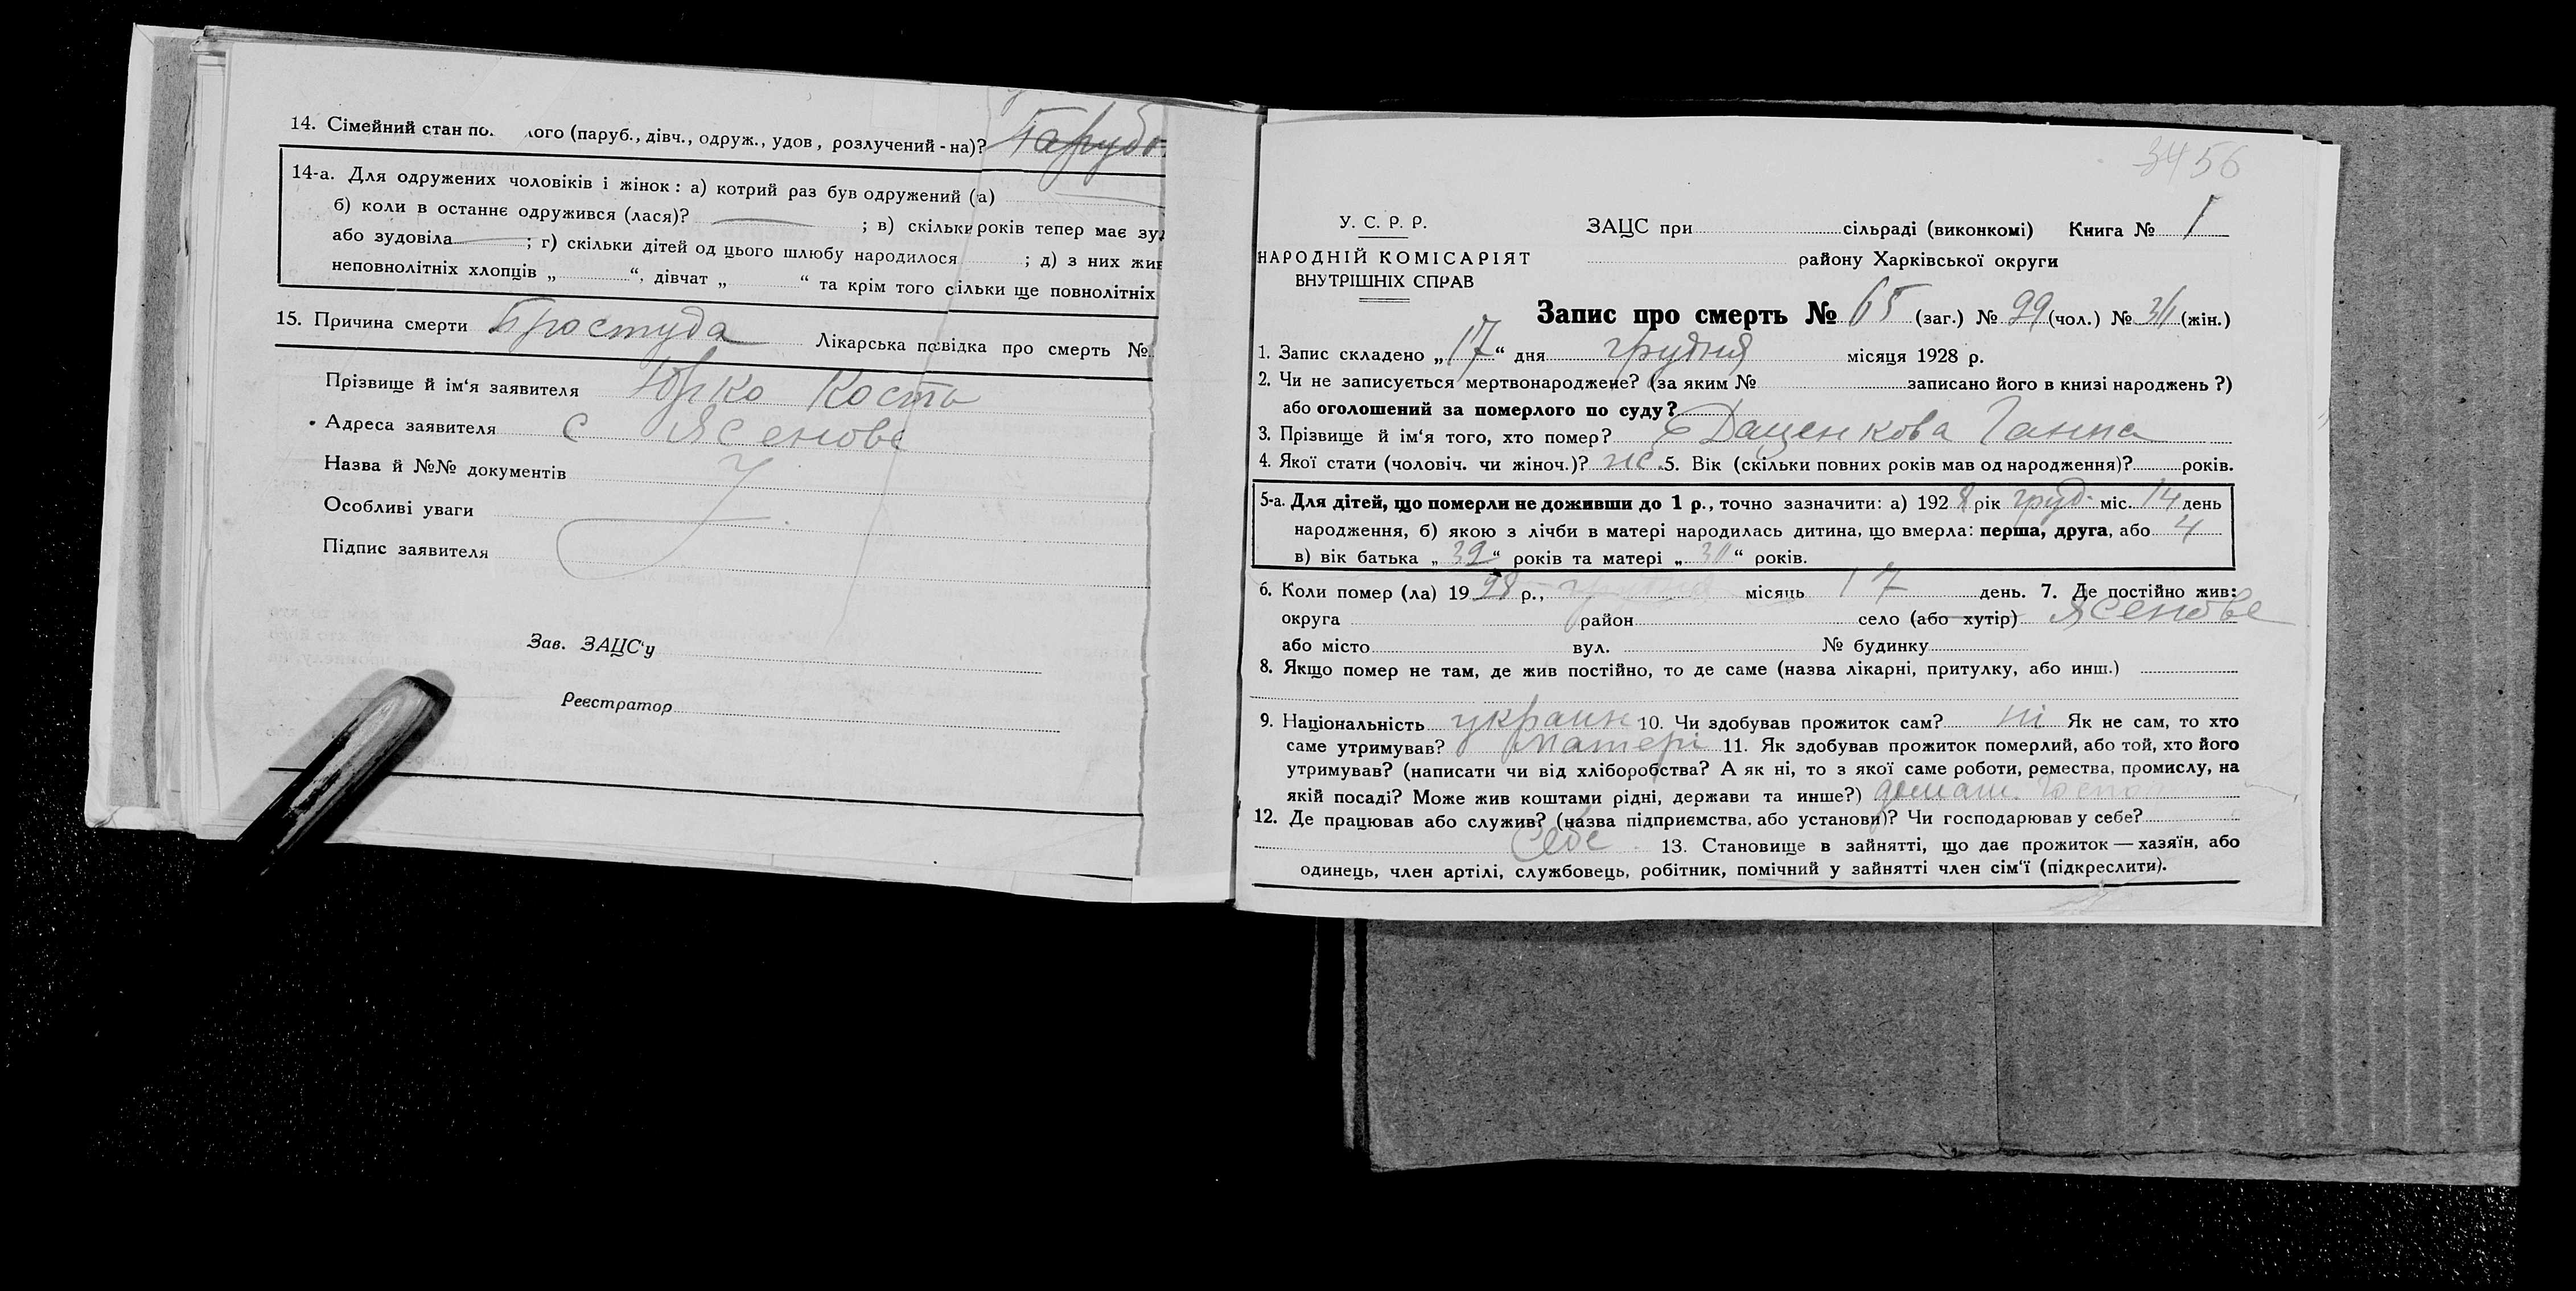 14. Сімейний стан по. ого (паруб., дівч., одруж., удов, розлучений-на)? Парубо
14-а. Для одружених чоловіків і жінок: а) котрий раз був одружений (а)
б) коли в останнє одружився (лася)? ; в) скільки років тепер має зу
або зудовіла ; г) скільки дітей од цього шлюбу народилося ; д) з них жив
неповнолітніх хлопців „ “, дівчат „ “ та крім того сільки ще повнолітніх
15. Причина смерти Простуда Лікарська посвідка про смерть №
Прізвище й ім‘я заявителя Юрко Кость
Адреса заявителя с Ясенове
Назва й №№ документів
Особливі уваги
Підпис заявителя
Зав. ЗАЦС‘у
Реєстратор
3456
У. С. Р. Р.
НАРОДНІЙ КОМІСАРІЯТ
ВНУТРІШНІХ СПРАВ
ЗАЦС при сільраді (виконкомі) Книга № 1
району Харківської округи
Запис про смерть № 65 (заг.) № (чол.) № (жін.)
1. Запис складено „17“ дня грудня місяця 1928 р.
2. Чи не записується мертвонароджене? (за яким № записано його в книзі народжень?)
або оголошений за померлого по суду?
3. Прізвище й ім‘я того, хто помер? Даценкова Ганна
4. Якої стати (чоловіч. чи жіноч.)? ж. 5. Вік (скільки повних років мав од народження)? років.
5-а. Для дітей, що померли не доживши до 1 р., точно зазначити: а) 1928 рік груд. міс. 14 день
народження, б) якою з лічби в матері народилась дитина, що вмерла: перша, друга, або 4
в) вік батька „32“ років та матері „ “ років.
6. Коли помер (ла) 1928 р., грудня місяць 17 день. 7. Де постійно жив:
округа район село (або хутір) Ясенове
або місто вул. № будинку
8. Якщо помер не там, де жив постійно, то де саме (назва лікарні, притулку, або инш.)
9. Національність украин 10. Чи здобував прожиток сам? ні Як не сам, то хто
саме утримував? матері 11. Як здобував прожиток померлий, або той, хто його
утримував? (написати чи від хліборобства? А як ні, то з якої саме роботи, ремества, промислу, на
якій посаді? Може жив коштами рідні, держави та инше?) домаш.
12. Де працював або служив? (назва підприємства, або установи)? Чи господарював у себе?
себе 13. Становище в зайнятті, що дає прожиток — хазяїн, або
одинець, член артілі, службовець, робітник, помічний у зайнятті член сім‘ї (підкреслити).